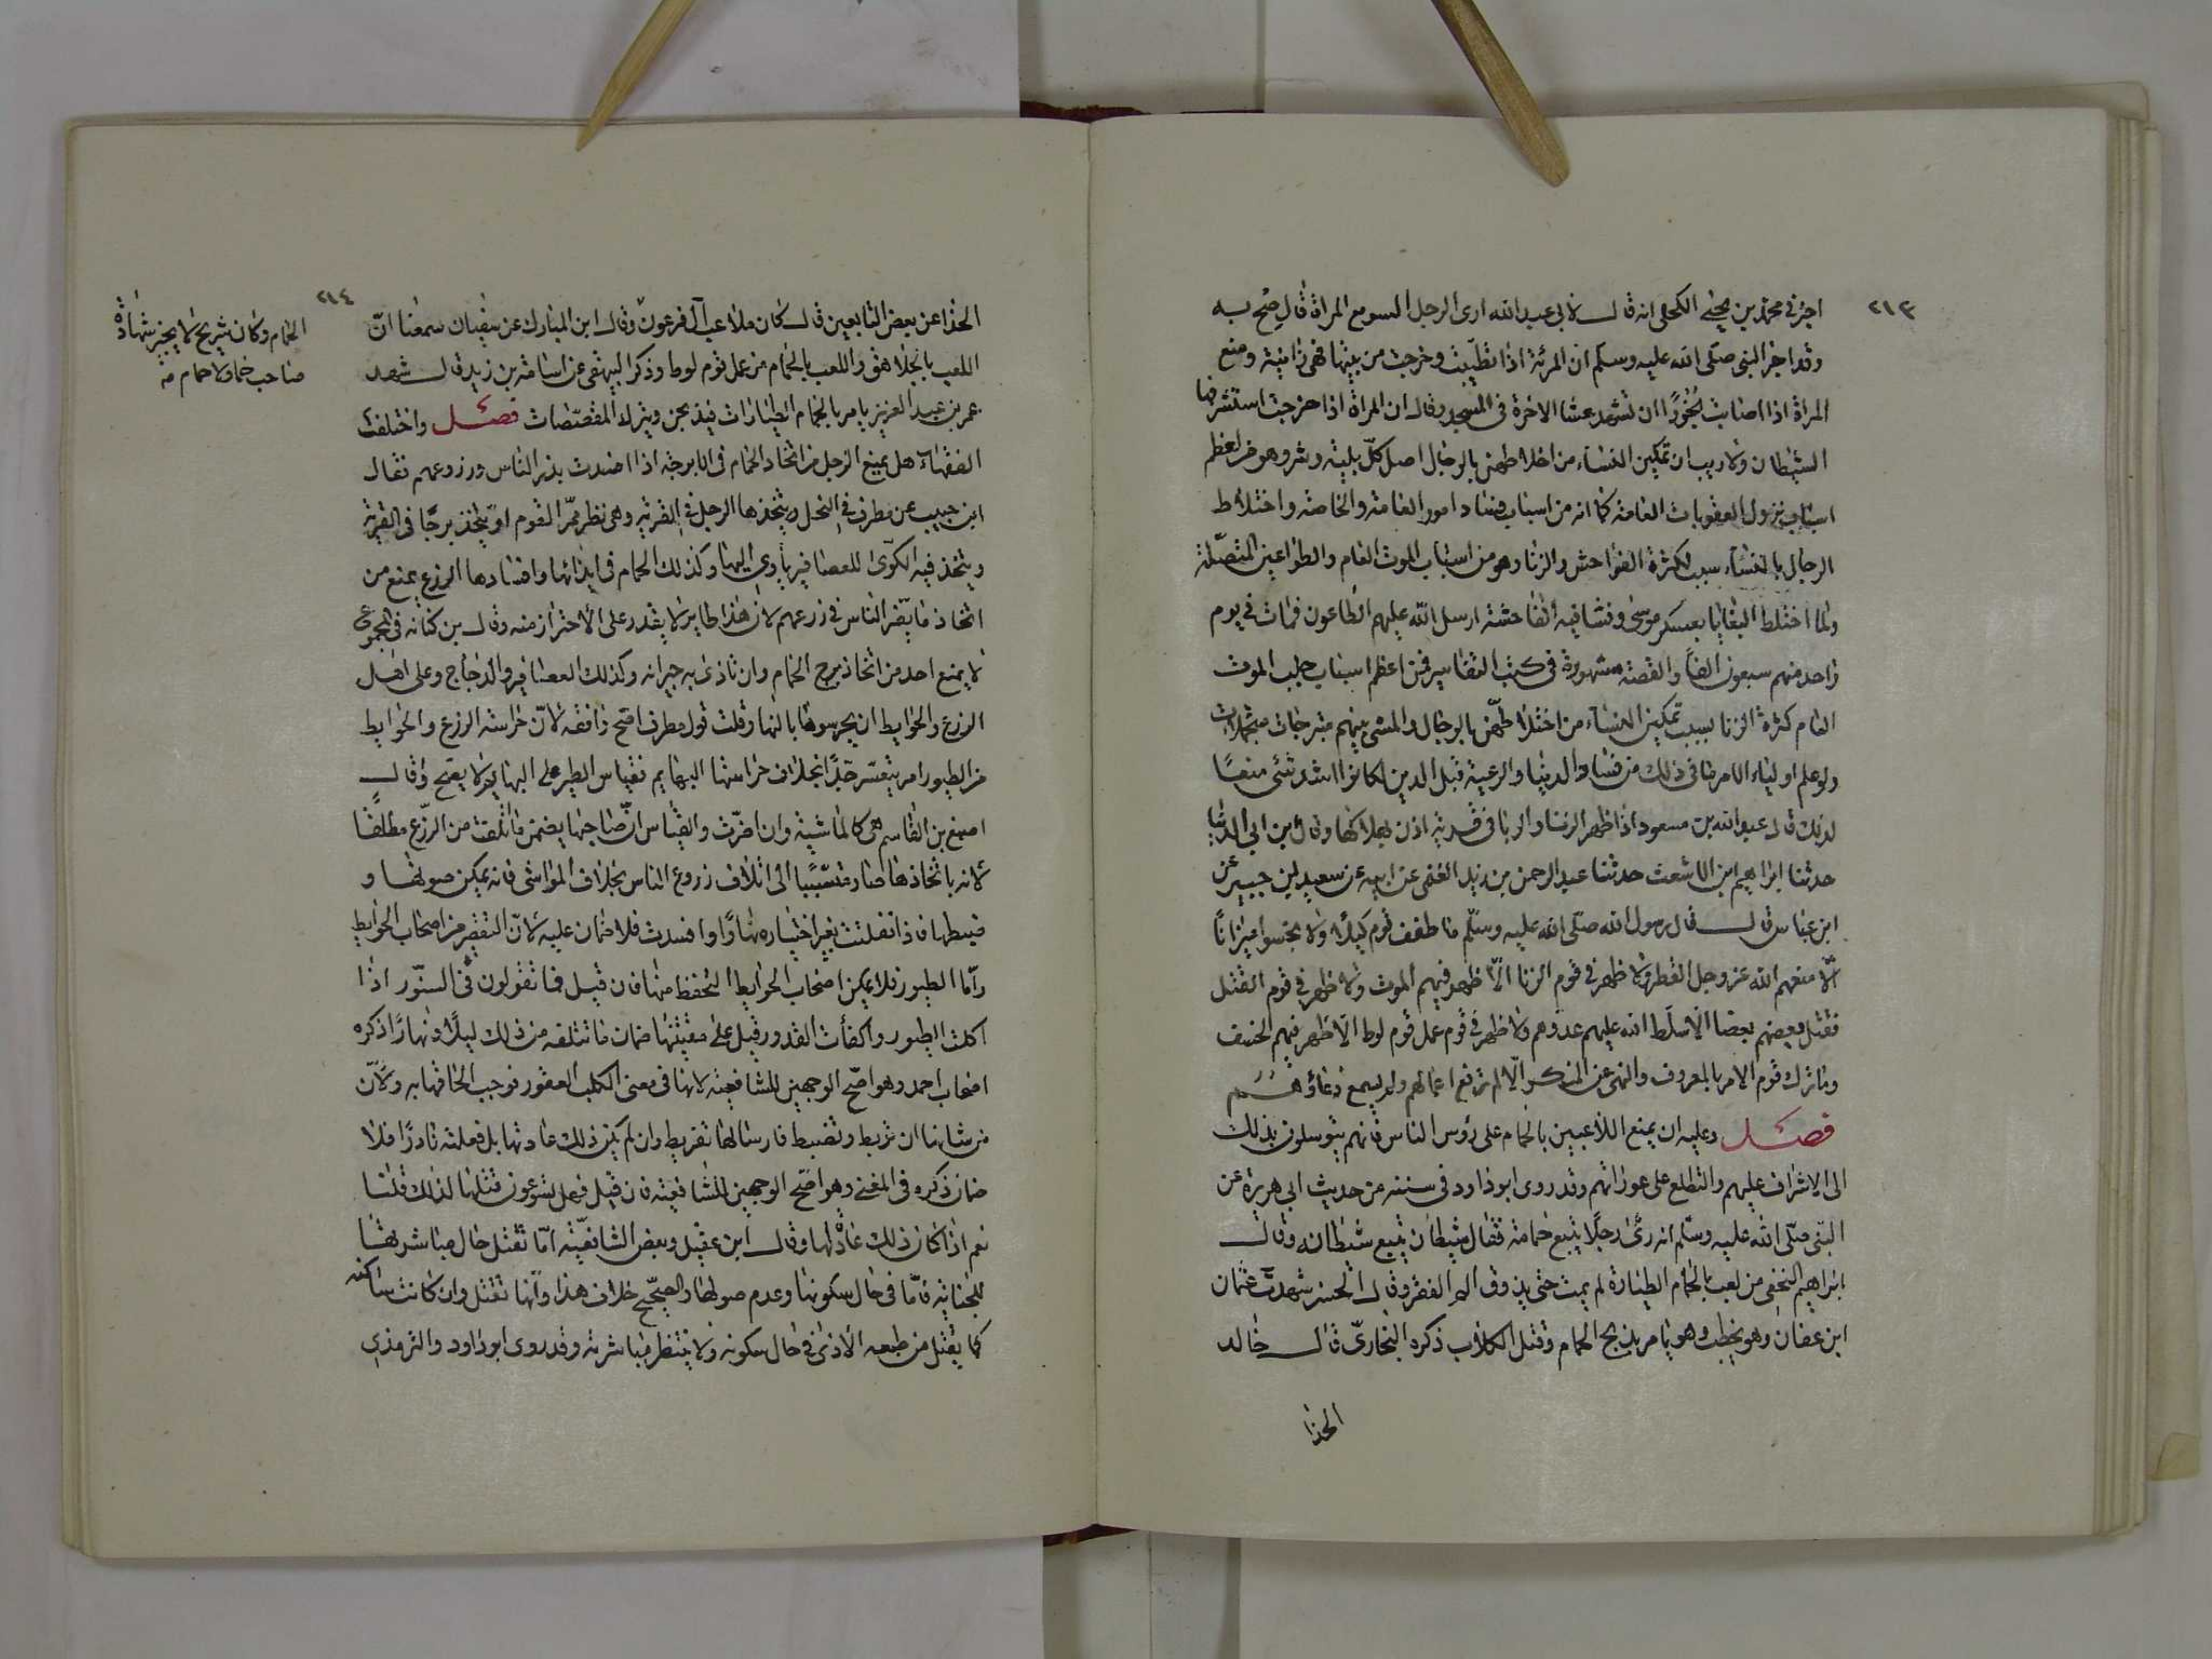 ٢١٣
اخبرني محمد بن يحيى الكحال انه قال لابي عبد الله ارى الرجل السوء مع المراة قال صح به
وقد اخبر النبي صلى الله عليه وسلم ان المرئة اذا تطيبت وخرجت من بيتها فهى زانية ومنع
المراة اذا اصابت بخورًا ان تشهد عشا الاخرة في المسجد وقال ان المراة اذا خرجت استشرفها
الشيطان ولا ريب ان تمكين النساء من اختلاطهن بالرجال اصل كل بلية وشر وهو من اعظم
اسباب نزول العقوبات العامة كما انه من اسباب فساد امور العامة والخاصة واختلاط
الرجال بالنساء سبب لكثرة الفواحش والزنا وهو من اسباب الموت العام والطواعين المتصلة
ولما اختلط البغايا بعسكر موسى وفشا فيه الفاحشة ارسل الله عليهم الطاعون فمات في يوم
واحد منهم سبعون الفًا والقصة مشهورة في كتب التفاسير فمن اعظم اسباب الموت
العام كثرة الزنا بسبب تمكين النساء من اختلاطهن بالرجال والمشى بينهم متبرجات متجملات
ولو علم اولياء الامر ما في ذلك من فساد الدنيا والرعية قبل الدين لكانوا اشد شئ منعًا
لذلك قال عبد الله بن مسعود اذا ظهر الزنا والربا في قرية اذن بهلاكها وقال بن ابي الدنيا
حدثنا ابراهيم ابن الاشعث حدثنا عبد الرحمن بن زيد العمى عن ابيه عن سعيد بن جبير عن
ابن عباس قال قال رسول الله صلى الله عليه وسلم ما طفف قوم كيلًا ولا بخسوا ميزانًا
الّا منعهم الله عز وجل القطر ولا ظهر في قوم الزنا الّا ظهر فيهم الموت ولا ظهر في قوم القتل
فقتل بعضهم بعضا الّا سلط الله عليهم عدوهم ولا ظهر في قوم عمل قوم لوط الّا ظهر فيهم الخسف
وما ترك قوم الامر بالمعروف والنهى عن المنكر الّا لم ترفع اعمالهم ولم يسمع دعاؤهم
فصل وعليه ان يمنع اللاعبين بالحمام على رؤس الناس فانهم يتوسلون بذلك
الى الاشراف عليهم والتطلع على عوراتهم وقد روى ابو داود في سننه من حديث ابي هريرة عن
النبي صلى الله عليه وسلم انه رأى رجلًا يتبع حمامة فقال شيطان يتبع شيطانه وقال
ابراهيم النخعي من لعب بالحمام الطيارة لم يمت حتى يذوق الم الفقر وقال الحسن شهدت عثمان
ابن عفان وهو يخطب وهو يامر بذبح الحمام وقتل الكلاب ذكره البخاريّ قال خالد
الحذا
٢١٤
الحذا عن بعض التابعين قال كان ملاعب آل فرعون وقال ابن المبارك عن سفيان سمعنا انّ
اللعب بالجلاهق واللعب بالحمام من عمل قوم لوط وذكر البيهقى عن اسامة بن زيد قال شهد
عمر بن عبد العزيز يامر بالحمام الطيارات فيذبحن ويترك المقصّصات فصل واختلف
الفقهاء هل يمنع الرجل من اتخاذ الحمام في الابرجة اذا افسدت بذر الناس وزروعهم فقال
ابن حبيب عن مطرف في النحل ويتخذها الرجل في القرية وهى نظر ممرّ القوم او يتخذ برجًا في القرية
ويتخذ فيه الكوّى للعصافير يأوى اليها وكذلك الحمام في ايذائها وافسادها الزرع يمنع من
اتخاذ ما يضر الناس في زرعهم لان هذا طاير لا يقدر على الاحتراز منه وقال بن كنانه في المجموع
لا يمنع احد من اتخاذ برج الحمام وان تاذى به جيرانه وكذلك العصافير والدجاج وعلى اهل
الزرع والحوايط ان يحرسوها بالنهار قلت قول مطرف اصح وافقه لانّ حراسة الزرع والحوايط
من الطيور امر يتعسّر جدًّا بخلاف حراستها البهايم فقياس الطير على البهايم لا يصح وقال
اصبغ بن القاسم هى كالماشية وان اضرّت والقياس انّ صاحبها يضمن ما اتلفت من الزرع مطلقًا
لانه باتخاذها صار متسبّبًا الى اتلاف زروع الناس بخلاف المواشى فانه يمكن صونها و
ضبطها فاذا انفلتت بغير اختياره نهارًا وافسدت فلا ضمان عليه لانّ التقصير من اصحاب الحوايط
وامّا الطيور فلا يمكن اصحاب الحوايط التحفظ منها فان قيل فما تقولون في السنّور اذا
اكلت الطيور واكفأت القدور قيل على مقتنيها ضمان ما تتلفه من ذلك ليلًا ونهارًا ذكره
اصحاب احمد وهو اصّح الوجهين للشافعية لانها في معنى الكلب العقور فوجب الحاقها به ولانّ
من شانها ان تربط وتضبط فارسالها تفريط وان لم يكن ذلك عادتها بل فعلته نادرًا فلا
ضمان ذكره في المغنى وهو اصّح الوجهين للشافعية فان قيل فهل تسوّغون قتلها لذلك قلنا
نعم اذا كان ذلك عادة لها وقال ابن عقيل وبعض الشافعيّة امّا تقتل حال مباشرتها
للجناية فامّا في حال سكونها وعدم صولها والصحيح خلاف هذا وانّها تقتل وان كانت ساكنه
كما يقتل من طبعه الاذى في حال سكونه ولا ينتظر مباشرته وقد روى ابو داود والترمذي
الحمام وكان شريح لا يجيز شهادة
صاحب حمام ولا حمام منه